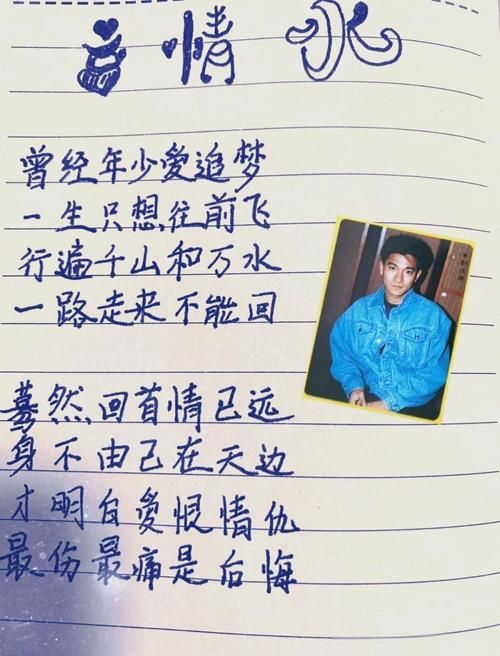 忘情水
曾经年少愛追梦
一生只想往前飞
行遍千山和万水
一路走来不能回
蓦然回首情已远
身不由己在天边
才明白愛恨情仇
最伤最痛是后悔